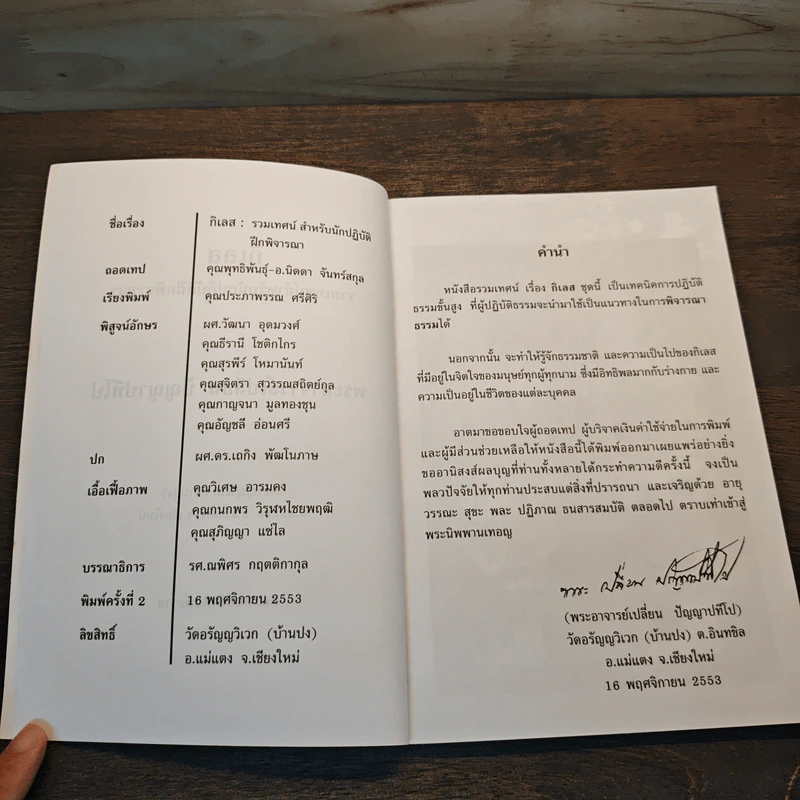 ชื่อเรื่อง กิเลส : รวมเทศน์ สำหรับนักปฏิบัติ
ฝึกพิจารณา
ถอดเทป คุณพุทธิพันธุ์-อ.นิดดา จันทร์สกุล
เรียงพิมพ์ คุณประภาพรรณ ศรีศิริ
พิสูจน์อักษร ผศ.วัฒนา อุดมวงศ์
คุณธีรานี โชติกไกร
คุณสุรพีร์ โหมานันท์
คุณสุจิตรา สุวรรณสถิตย์กุล
คุณกาญจนา มูลทองชุน
คุณอัญชลี อ่อนศรี
ปก ผศ.ดร.เถกิง พัฒโนภาษ
เอื้อเฟื้อภาพ คุณวิเศษ อารมคง
คุณกนกพร วิรุฬหไชยพฤฒิ
คุณสุภิญญา แซ่ไล
บรรณาธิการ รศ.ณพิศร กฤตติกากุล
พิมพ์ครั้งที่ 2 16 พฤศจิกายน 2553
ลิขสิทธิ์ วัดอรัญญวิเวก (บ้านปง)
อ.แม่แตง จ.เชียงใหม่
คำนำ
หนังสือรวมเทศน์ เรื่อง กิเลส ชุดนี้ เป็นเทคนิคการปฏิบัติ
ธรรมขั้นสูง ที่ผู้ปฏิบัติธรรมจะนำมาใช้เป็นแนวทางในการพิจารณา
ธรรมได้
นอกจากนั้น จะทำให้รู้จักธรรมชาติ และความเป็นไปของกิเลส
ที่มีอยู่ในจิตใจของมนุษย์ทุกผู้ทุกนาม ซึ่งมีอิทธิพลมากกับร่างกาย และ
ความเป็นอยู่ในชีวิตของแต่ละบุคคล
อาตมาขอขอบใจผู้ถอดเทป ผู้บริจาคเงินค่าใช้จ่ายในการพิมพ์
และผู้มีส่วนช่วยเหลือให้หนังสือนี้ได้พิมพ์ออกมาเผยแพร่อย่างยิ่ง
ขออานิสงส์ผลบุญที่ท่านทั้งหลายได้กระทำความดีครั้งนี้ จงเป็น
พลวปัจจัยให้ทุกท่านประสบแต่สิ่งที่ปรารถนา และเจริญด้วย อายุ
วรรณะ สุขะ พละ ปฏิภาณ ธนสารสมบัติ ตลอดไป ตราบเท่าเข้าสู่
พระนิพพานเทอญ
(พระอาจารย์เปลี่ยน ปัญญาปทีโป)
วัดอรัญญวิเวก (บ้านปง) ต.อินทขิล
อ.แม่แตง จ.เชียงใหม่
16 พฤศจิกายน 2553